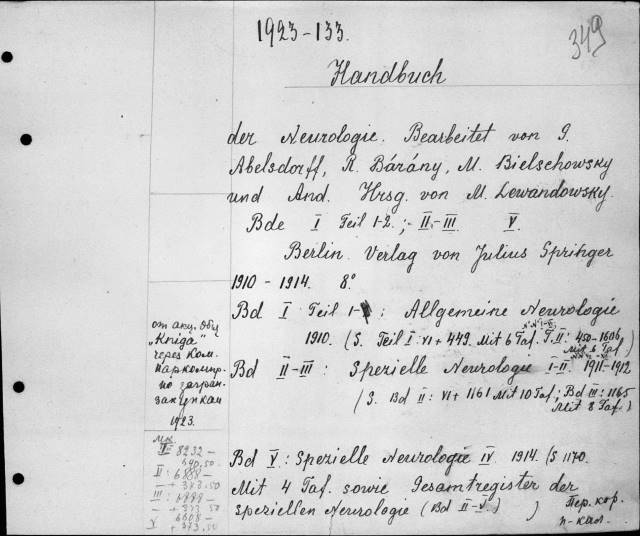 1923-133.
349
Handbuch
der Neurologie. Bearbeitet von G.
Abelsdorff, R. Bárány, M. Bielschowsky
und And. Hrsg. von M. Lewandowsky.
Bde I Teil 1-2.; II-III V.
Berlin. Verlag von Julius Springer
1910 - 1914. 8°
Bd I Teil 1- : Allgemeine Neurologie
1910. (S. Teil I: VI + 449. Mit 6 Taf. T. II: 450-1606
Mit 6 Taf.
Bd II-III: Spezielle Neurologie I-II. 1911-1912
(S. Bd II: VI + 1161 Mit 10 Taf.; Bd III: 1165
Mit 8 Taf.)
Bd V: Spezielle Neurologie IV. 1914. (S 1170.
Mit 4 Taf. sowie Gesamtregister der
speziellen Neurologie (Bd II-V.) )
Пер. кор.
п-кал.
от акц. Общ
„Книга"
через Ком.
Наркомпр.
по загран.
закупкам
1923.
I - 8232 -
II: 6888 -
- + 373.50
III:
- + 373 50
V 6608 -
+ 373.50